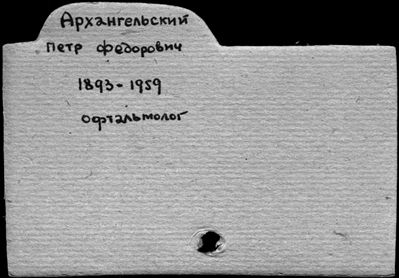 Архангельский
Петр Федорович
1893-1959
офтальмолог